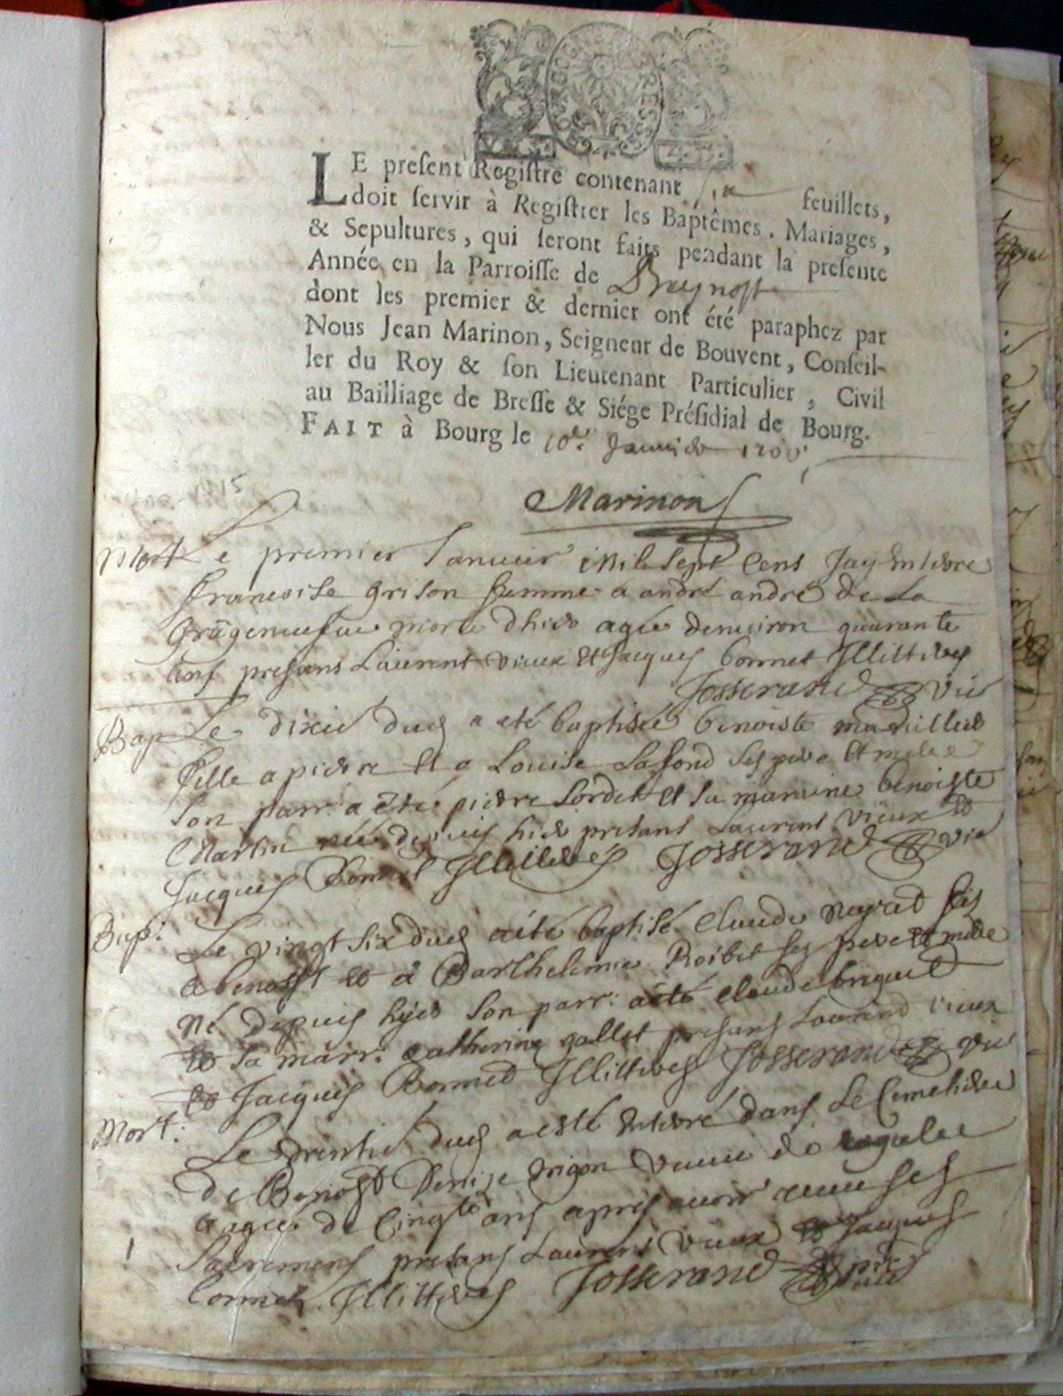 LE preſent Regiſtre contenant ſix feuillets,
doit ſervir à Regiſtrer les Baptêmes, Mariages,
& Sepultures, qui ſeront faits pendant la preſente
Année en la Parroiſſe de Beynost
dont les premier & dernier ont été paraphez par
Nous Jean Marinon, Seigneur de Bouvent, Conſeil-
ler du Roy & ſon Lieutenant Particulier, Civil
au Bailliage de Breſſe & Siége Préſidial de Bourg.
FAIT à Bourg le 10e. Janvier
Marinon
Mort Le premier Januier mil sept Cens Jay enterre
francoise grison femme a andre andré de La
morte d'hier agée denuiron quarante
ans presans Laurent vieux et Jacques bonnet Illitterés
Josserand vic
Bap Le dixié dud a eté baptisée benoiste
fille a pierre et a Louise Lafond ses pere et mere
son parr. a été pierre Sordet et sa maraine benoiste
Martin née depuis hier presans Laurent vieux et
Jacques Bonnet Illiterés Josserand vic
Bap: Le vingt six dud a eté baptisé Claude fils
a benoist et a Barthelemie Roibet ses pere et mere
né depuis hyer son parr: a eté claude briquet
et sa marr. catherine gallet presans Laurend vieux
et Jacques Bonnet Illitterés Josserand vic
Mort: Le trentié dud a esté enterré dans Le Cemetiere
de Benost Denise vueue de
agée de Cinqte ans apres auoir receu ses
Sacremens presans Laurent vieux et Jacques
bonnet Illitterés Josserand vic